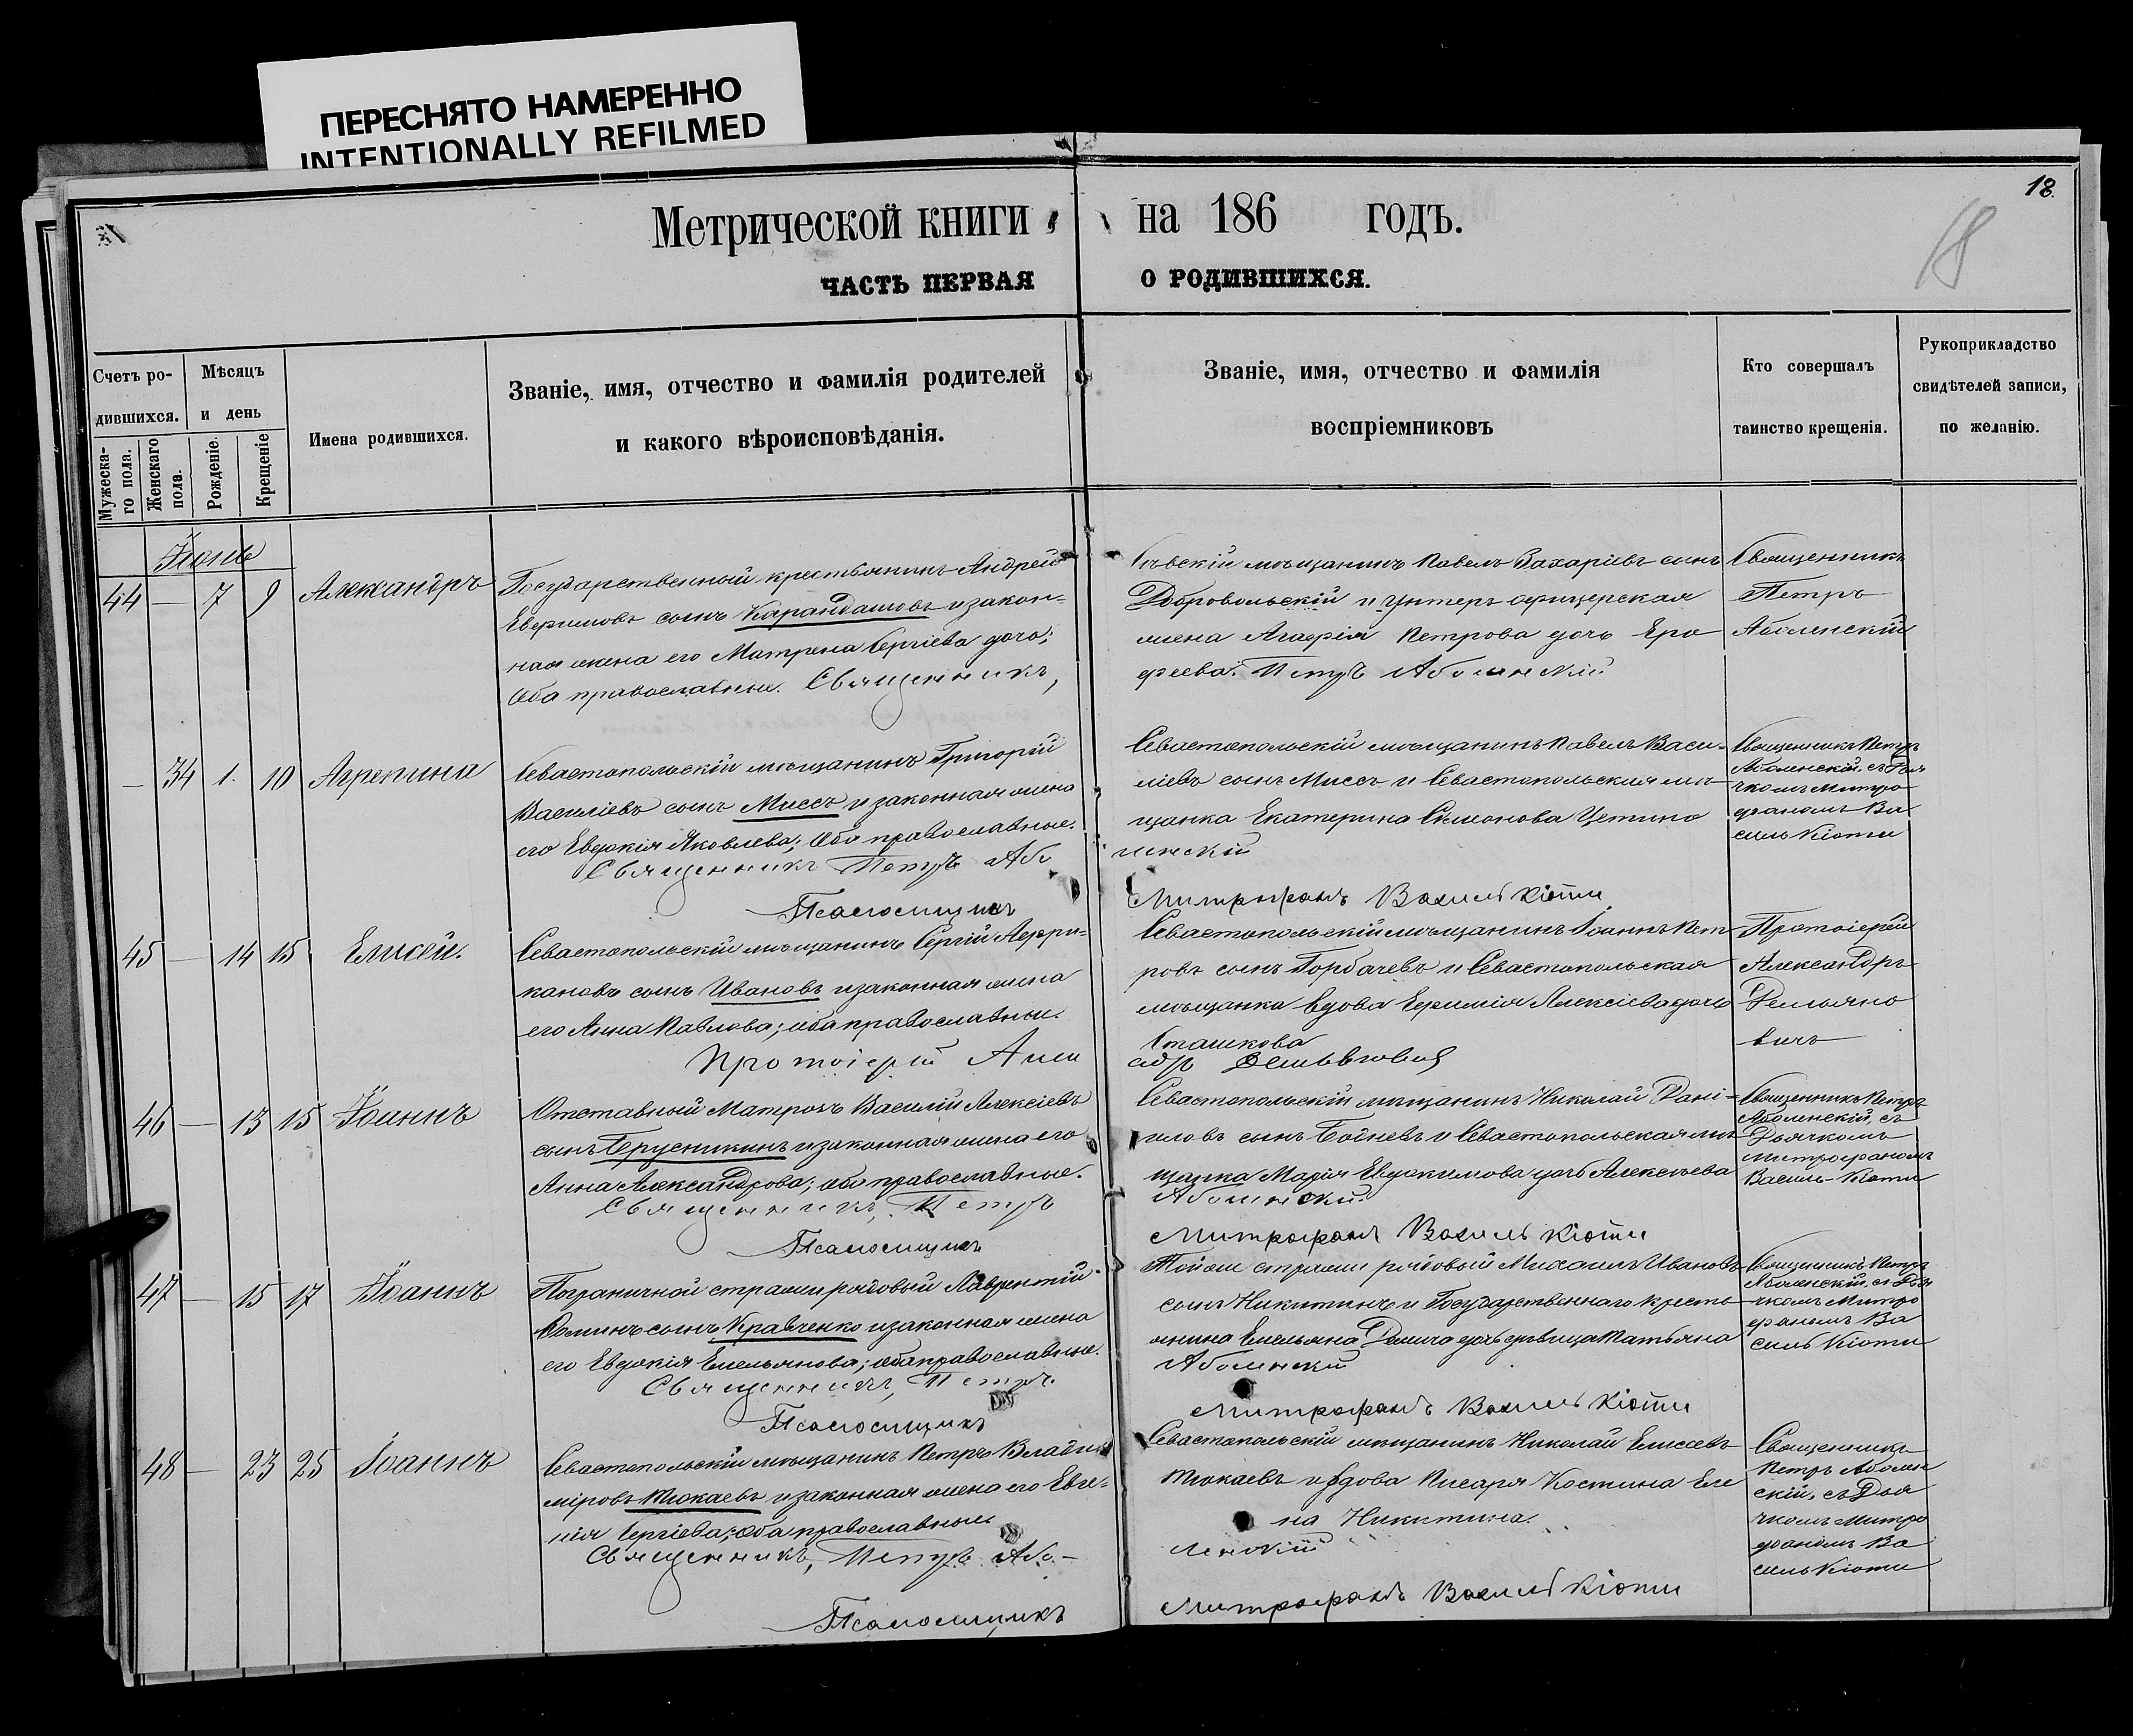 ПЕРЕСНЯТО НАМЕРЕННО
INTENTIONALLY REFILMED
18.
18
Метрической книги на 186 годъ.
ЧАСТЬ ПЕРВАЯ О РОДИВШИХСЯ.
Счетъ ро-
дившихся.
Мужеска-
го пола.
Женскаго
пола.
Мѣсяцъ
и день
Рожденіе.
Крещеніе
Имена родившихся.
Званіе, имя, отчество и фамилія родителей
и какого вѣроисповѣданія.
Званіе, имя, отчество и фамилія
воспріемниковъ
Кто совершалъ
таинство крещенія.
Рукоприкладство
свидѣтелей записи,
по желанію.
Іюнь
44 — 7 9 Александръ
Государственный крестьянинъ Андрей
Евфимовъ сынъ Карандашовъ и закон-
ная жена его Матрена Сергіева дочь;
Оба православные. Священникъ,
мѣщанинъ Павелъ Захаріевъ сынъ
Добровольскій и Унтеръ офицерская
жена Агафія Петрова дочь Еро
феева. Петръ Аболенскій
Священникъ
Петръ
Аболенскій
— 34 1. 10 Агрепина
Севастопольскій мѣщанинъ Григорій
Василіевъ сынъ Миссъ и законная жена
его Евдокія Яковлева; Оба православные.
Священникъ Петръ Або
Псаломщикъ
Севастопольскій мѣщанинъ Павелъ Васи-
ліевъ сынъ Миссъ и Севастопольская мѣ-
щанка Екатерина Симонова
ленскій
Митрофанъ Василькіоти
Священникъ Петръ
Аболенскій, съ Дья
чкомъ Митро
фаномъ Ва
силькіоти
45 — 14 15 Елисей.
Севастопольскій мѣщанинъ Сергій Афри-
кановъ сынъ Ивановъ и законная жена
его Анна Павлова; оба православные.
Протоіерей Алек
Севастопольскій мѣщанинъ Іоаннъ Пет
ровъ сынъ Горбачевъ и Севастопольская
мѣщанка вдова Ефимія Алексіева дочь
Сташкова
сдръ Демьяновичъ
Протоіерей
Александръ
Демьяно
вичъ
46 — 13 15 Іоаннъ
Отставный Матрозъ Василій Алексіевъ
сынъ Брусникинъ и законная жена его
Анна Александрова; оба православные.
Священникъ, Петръ
Псаломщикъ
Севастопольскій мѣщанинъ Николай Дані-
иловъ сынъ Бодневъ и Севастопольская мѣ
щанка Марія Евдокимова дочь Алексѣева
Аболенскій
Митрофанъ Василькіоти
Священникъ Петръ
Аболенскій, съ
Дьячкомъ
Митрофаномъ
Василь-Кіоти
47 — 15 17 Іоаннъ
Пограничной стражи рядовый Лаврентій
Фоминъ сынъ Кравченко и законная жена
его Евдокія Емельянова; оба православные.
Священникъ, Петръ
Псаломщикъ
Той же стражи рядовый Михаилъ Ивановъ
сынъ Никитинъ и Государственнаго кресть
янина Емельяна дочь дѣвица Татьяна
Аболенскій
Митрофанъ Василькіоти
Священникъ Петръ
Аболенскій, съ Дья
чкомъ Митро
фаномъ Ва
силь Кіоти
48 — 23 25 Іоаннъ
Севастопольскій мѣщанинъ Петръ Влади
міровъ Тюкаевъ и законная жена его Евге-
нія Сергіева; оба православные
Священникъ, Петръ Або-
Псаломщикъ
Севастопольскій мѣщанинъ Николай Елисеевъ
Тюкаевъ и вдова Писаря Костина Еле
на Никитина.
ленскій
Митрофанъ Василькіоти
Священникъ
Петръ Аболен
скій, съ Дья
чкомъ Митро
фаномъ Ва
силь Кіоти